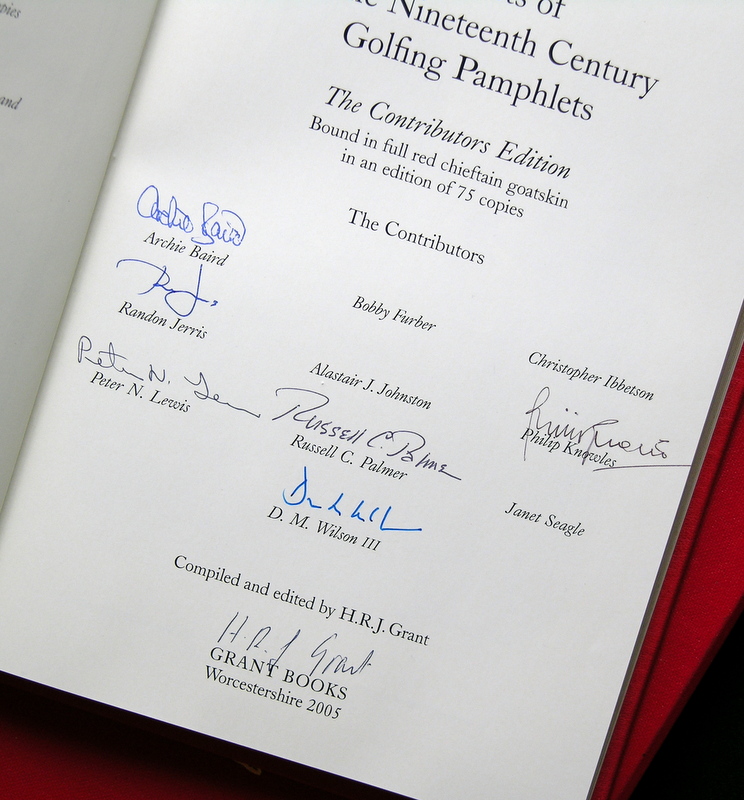 pies
and
ts of
e Nineteenth Century
Golfing Pamphlets
The Contributors Edition
Bound in full red chieftain goatskin
in an edition of 75 copies
The Contributors
Archie Baird
Archie Baird
Bobby Furber
Christopher Ibbetson
Randon Jerris
Alastair J. Johnston
Peter N. Lewis
Peter N. Lewis
Russell C. Palmer
Russell C. Palmer
Philip Knowles
Janet Seagle
D. M. Wilson III
Compiled and edited by H.R.J. Grant
H.R.J Grant
GRANT BOOKS
Worcestershire 2005